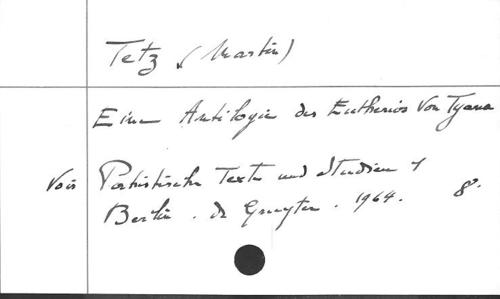 Tetz (Martin)
Eine Antilogie des Eutherios Von Tyana
Vois Patristische Texte und Studien 1
Berlin. de Gruyter. 1964. 8°.